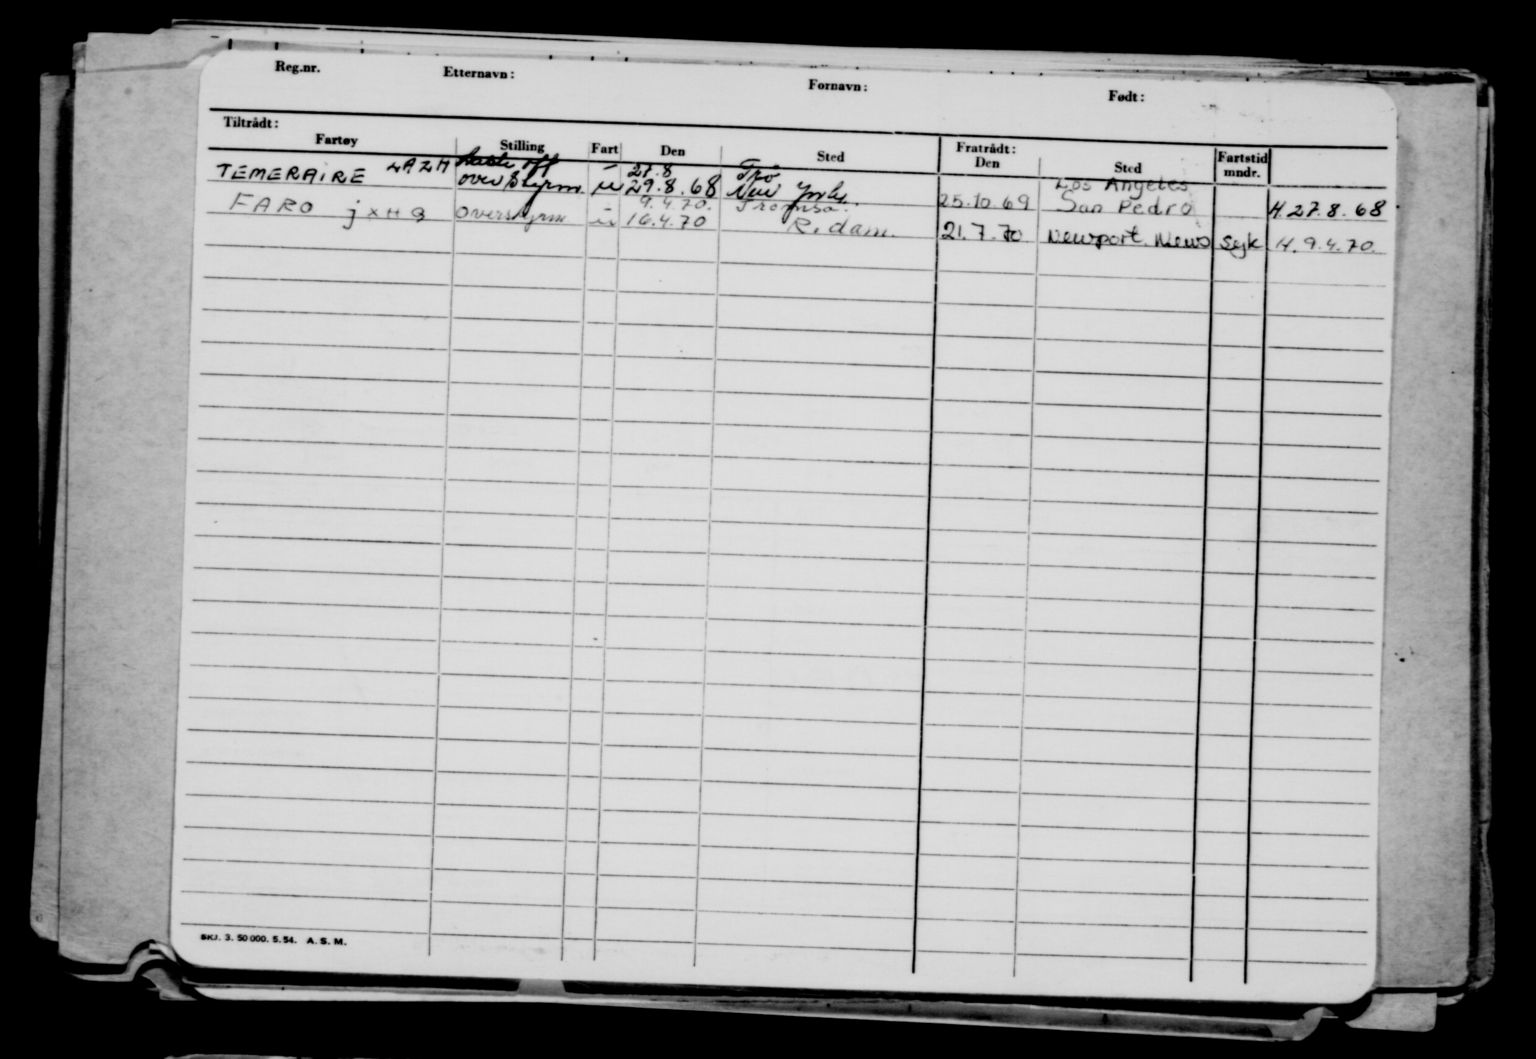 Reg.nr. Etternavn: Fornavn: Født:
Tiltrådt: Fratrådt:
Fartøy Stilling Fart Den Sted Den Sted Fartstid mndr.
off 27.8 Trø Los Angeles
TEMERAIRE LAZH overstyrm. u 29.8.68 New York. 25.10.69 San Pedro H.27.8.68
9.4.70. Tromsø.
FARO jXHQ overstyrm u 16.4.70 R.dam. 21.7.70 Newport News syk H.9.4.70.
SKJ. 3. 50 000. 5. 54. A. S. M.